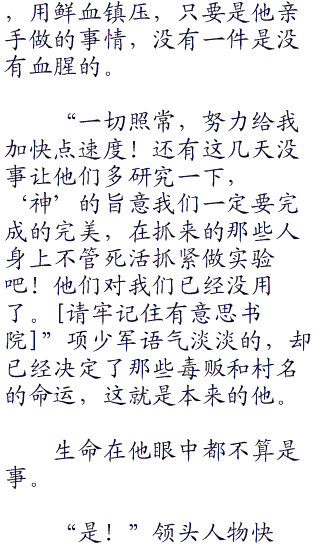 ，用鲜血镇压，只要是他亲
手做的事情，没有一件是没
有血腥的。
“一切照常，努力给我
加快点速度！还有这几天没
事让他们多研究一下，
‘神’的旨意我们一定要完
成的完美，在抓来的那些人
身上不管死活抓紧做实验
吧！他们对我们已经没用
了。[请牢记住有意思书
院]”项少军语气淡淡的，却
已经决定了那些毒贩和村名
的命运，这就是本来的他。
生命在他眼中都不算是
事。
“是！”领头人物快